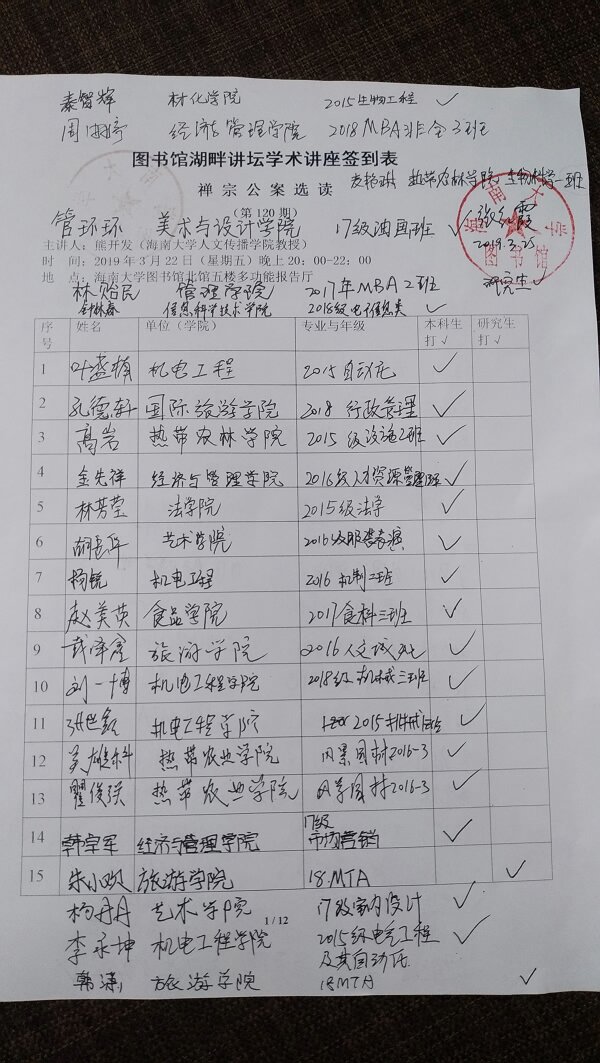 秦智辉 材化学院 2015生物工程 ✓
周湘婷 经济与管理学院 2018MBA非全3班
图书馆湖畔讲坛学术讲座签到表
禅宗公案选读 热带农林学院 生物科学一班
(第120期)
管环环 美术与设计学院 17级油画班 ✓
主讲人:熊开发(海南大学人文传播学院教授) 2019.3.25
时 间:2019年3月22日(星期五)晚上20:00-22:00 图书馆
地 点:海南大学图书馆北馆五楼多功能报告厅
林贻民 管理学院 2017年MBA2班 研究生✓
钟林春 信息科学技术学院 2018级电子信息类 ✓
序号 姓名 单位(学院) 专业与年级 本科生打✓ 研究生打✓
1 叶盛楠 机电工程 2015自动化 ✓
2 孔德轩 国际旅游学院 2018 行政管理 ✓
3 高岩 热带农林学院 2015级设施2班 ✓
4 金先祥 经济与管理学院 2016级人力资源管理班 ✓
5 林芳莹 法学院 2015级法学 ✓
6 艺术学院 2016级服装表演 ✓
7 杨锐 机电工程 2016机制二班 ✓
8 赵美英 食品学院 2017食科三班 ✓
9 旅游学院 2016人文城规 ✓
10 刘一博 机电工程学院 2018级机械三班 ✓
11 机电工程学院 2015机械 ✓
12 热带农业学院 风景园林2016-3 ✓
13 瞿俊 热带农业学院 风景园林2016-3 ✓
14 韩宗军 经济与管理学院 17级市场营销 ✓
15 朱小 旅游学院 18MTA ✓
杨丹丹 艺术学院 17级室内设计 ✓
1 / 12
李永坤 机电工程学院 2015级电气工程及其自动化 ✓
韩潇 旅游学院 18MTA ✓